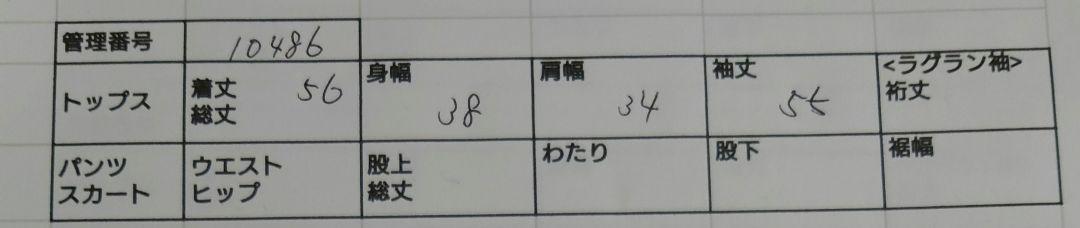 管理番号 10486
トップス 着丈 総丈 56 身幅 38 肩幅 34 袖丈 55 <ラグラン袖> 裄丈
パンツ スカート ウエスト ヒップ 股上 総丈 わたり 股下 裾幅